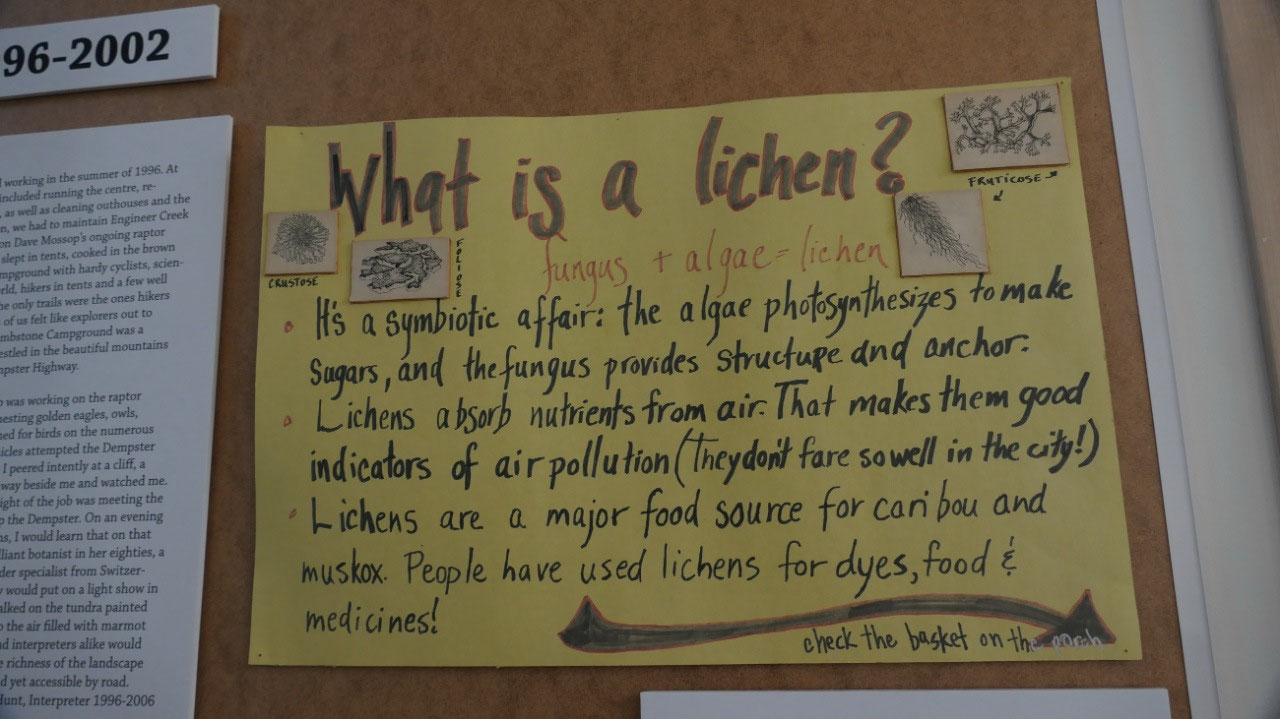 96-2002
working in the summer of 1996. At
included running the centre, re-
, as well as cleaning outhouses and the
n, we had to maintain Engineer Creek
on Dave Mossop's ongoing raptor
slept in tents, cooked in the brown
mpground with hardy cyclists, scien-
rld, hikers in tents and a few well
he only trails were the ones hikers
of us felt like explorers out to
mbstone Campground was a
estled in the beautiful mountains
mpster Highway.
was working on the raptor
nesting golden eagles, owls,
ned for birds on the numerous
icles attempted the Dempster
I peered intently at a cliff, a
way beside me and watched me.
ight of the job was meeting the
the Dempster. On an evening
ns, I would learn that on that
lliant botanist in her eighties, a
der specialist from Switzer-
would put on a light show in
alked on the tundra painted
the air filled with marmot
nd interpreters alike would
e richness of the landscape
d yet accessible by road.
Hunt, Interpreter 1996-2006
What is a lichen?
FRUTICOSE
CRUSTOSE
FOLIOSE
fungus + algae = lichen
It's a symbiotic affair: the algae photosynthesizes to make
sugars, and the fungus provides structure and anchor.
Lichens absorb nutrients from air. That makes them good
indicators of air pollution (They don't fare so well in the city!)
Lichens are a major food source for caribou and
muskox. People have used lichens for dyes, food &
medicines!
check the basket on the porch